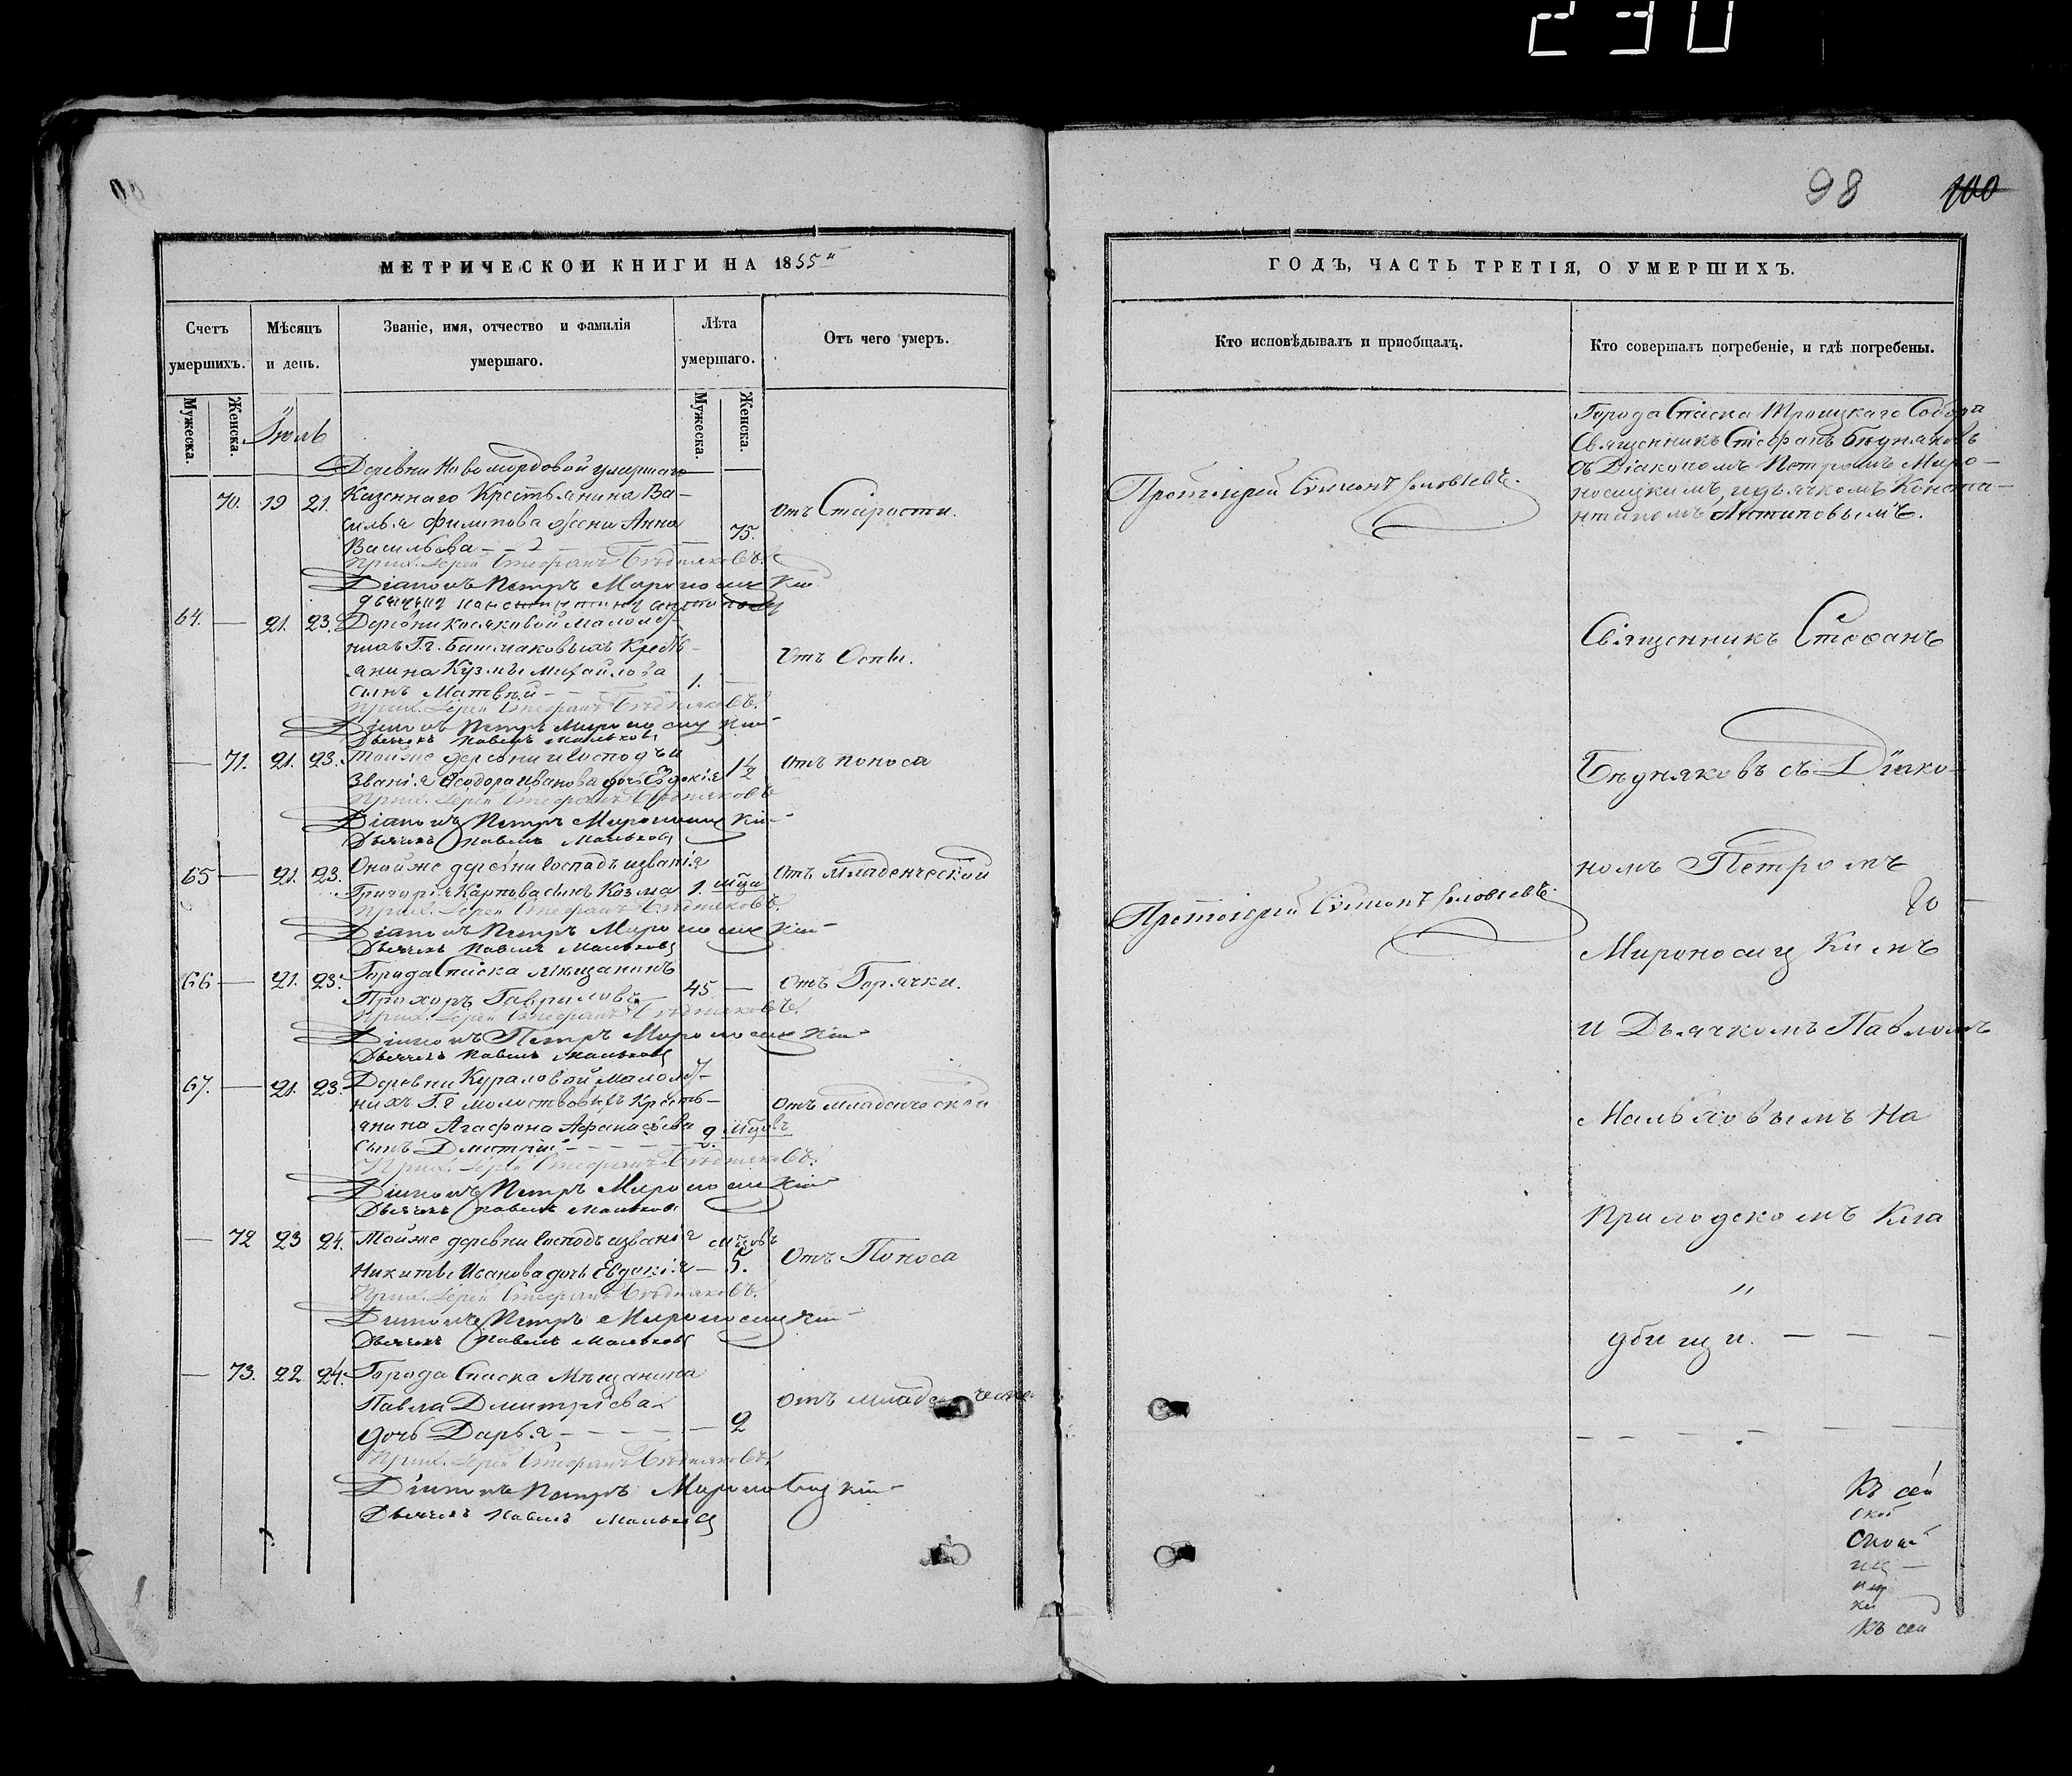 230
98 100
МЕТРИЧЕСКОЙ КНИГИ НА 1855й
Счетъ умершихъ.
Мѣсяцъ и день.
Званіе, имя, отчество и фамилія умершаго.
Лѣта умершаго.
Отъ чего умеръ.
Мужеска.
Женска.
Мужеска.
Женска.
Іюль
Деревни Новомордовой умершаго
70. 19 21. Казеннаго Крестьянина Ва-
силья Филипова жена Анна
Васильева 75. отъ Старости.
Прих. Іерей Стефанъ Бѣдняковъ.
Діаконъ Петръ Мироносицкій
64. — 21. 23. Деревни Косяковой малолѣт-
нихъ Г.г. Башмаковыхъ Кресть-
янина Кузмы Михайлова
сынъ Матвѣй 1. — Отъ Оспы.
Прих. Іерей Стефанъ Бѣдняковъ.
Діаконъ Петръ Мироносицкій
Дьячекъ Павелъ Мальковъ
— 71. 21. 23. Тойже деревни и Господъ и
званія Ѳеодора Иванова дочь Евдокія 1½ отъ поноса
Прих. Іерей Стефанъ Бѣдняковъ
Діаконъ Петръ Мироносицкій
Дьячекъ Павелъ Мальковъ
65 — 21. 23. Оной же деревни Господъ и званія
Григорія Карпова сынъ Козма 1. мца Отъ младенческой
Прих. Іерей Стефанъ Бѣдняковъ.
Діаконъ Петръ Мироносицкій
Дьячекъ Павелъ Мальковъ
66 — 21. 23. Города Спаска мѣщанинъ
Прохоръ Гавриловъ 45 — отъ Горячки.
Прих. Іерей Стефанъ Бѣдняковъ.
Діаконъ Петръ Мироносицкій
Дьячекъ Павелъ Мальковъ
67. — 21. 23. Деревни Кураловой малолѣт-
нихъ Г.г молоствовыхъ Кресть-
янина Агафона Афанасьева
сынъ Дмитрій 2. мцовъ отъ младенческой
Прих. Іерей Стефанъ Бѣдняковъ.
Діаконъ Петръ Мироносицкій
Дьячекъ Павелъ Мальковъ
— 72 23 24. Тойже деревни Господъ и званія
Никиты Иванова дочь Евдокія — 5. мцовъ Отъ Поноса
Прих. Іерей Стефанъ Бѣдняковъ.
Діаконъ Петръ Мироносицкій
Дьячекъ Павелъ Мальковъ
— 73. 22 24. Города Спаска Мѣщанина
Павла Дмитріева
дочь Дарья — 2 отъ младенческой
Прих. Іерей Стефанъ Бѣдняковъ.
Діаконъ Петръ Мироносицкій
Дьячекъ Павелъ Мальковъ
ГОДЪ, ЧАСТЬ ТРЕТІЯ, О УМЕРШИХЪ.
Кто исповѣдывалъ и пріобщалъ.
Кто совершалъ погребеніе, и гдѣ погребены.
Протоіерей Симеонъ Соловьевъ.
Города Спаска Троицкаго Собора
Священникъ Стефанъ Бѣдняковъ
съ Діакономъ Петромъ Миро-
носицкимъ, и дьячкомъ Конста-
нтиномъ Антиповымъ.
Священникъ Стефанъ
Бѣдняковъ съ Діако-
номъ Петромъ
Протоіерей Симеонъ Соловьевъ.
Мироносицкимъ
и Дьячкомъ Павломъ
Мальковымъ На
Приходскомъ Кла
дбищи.